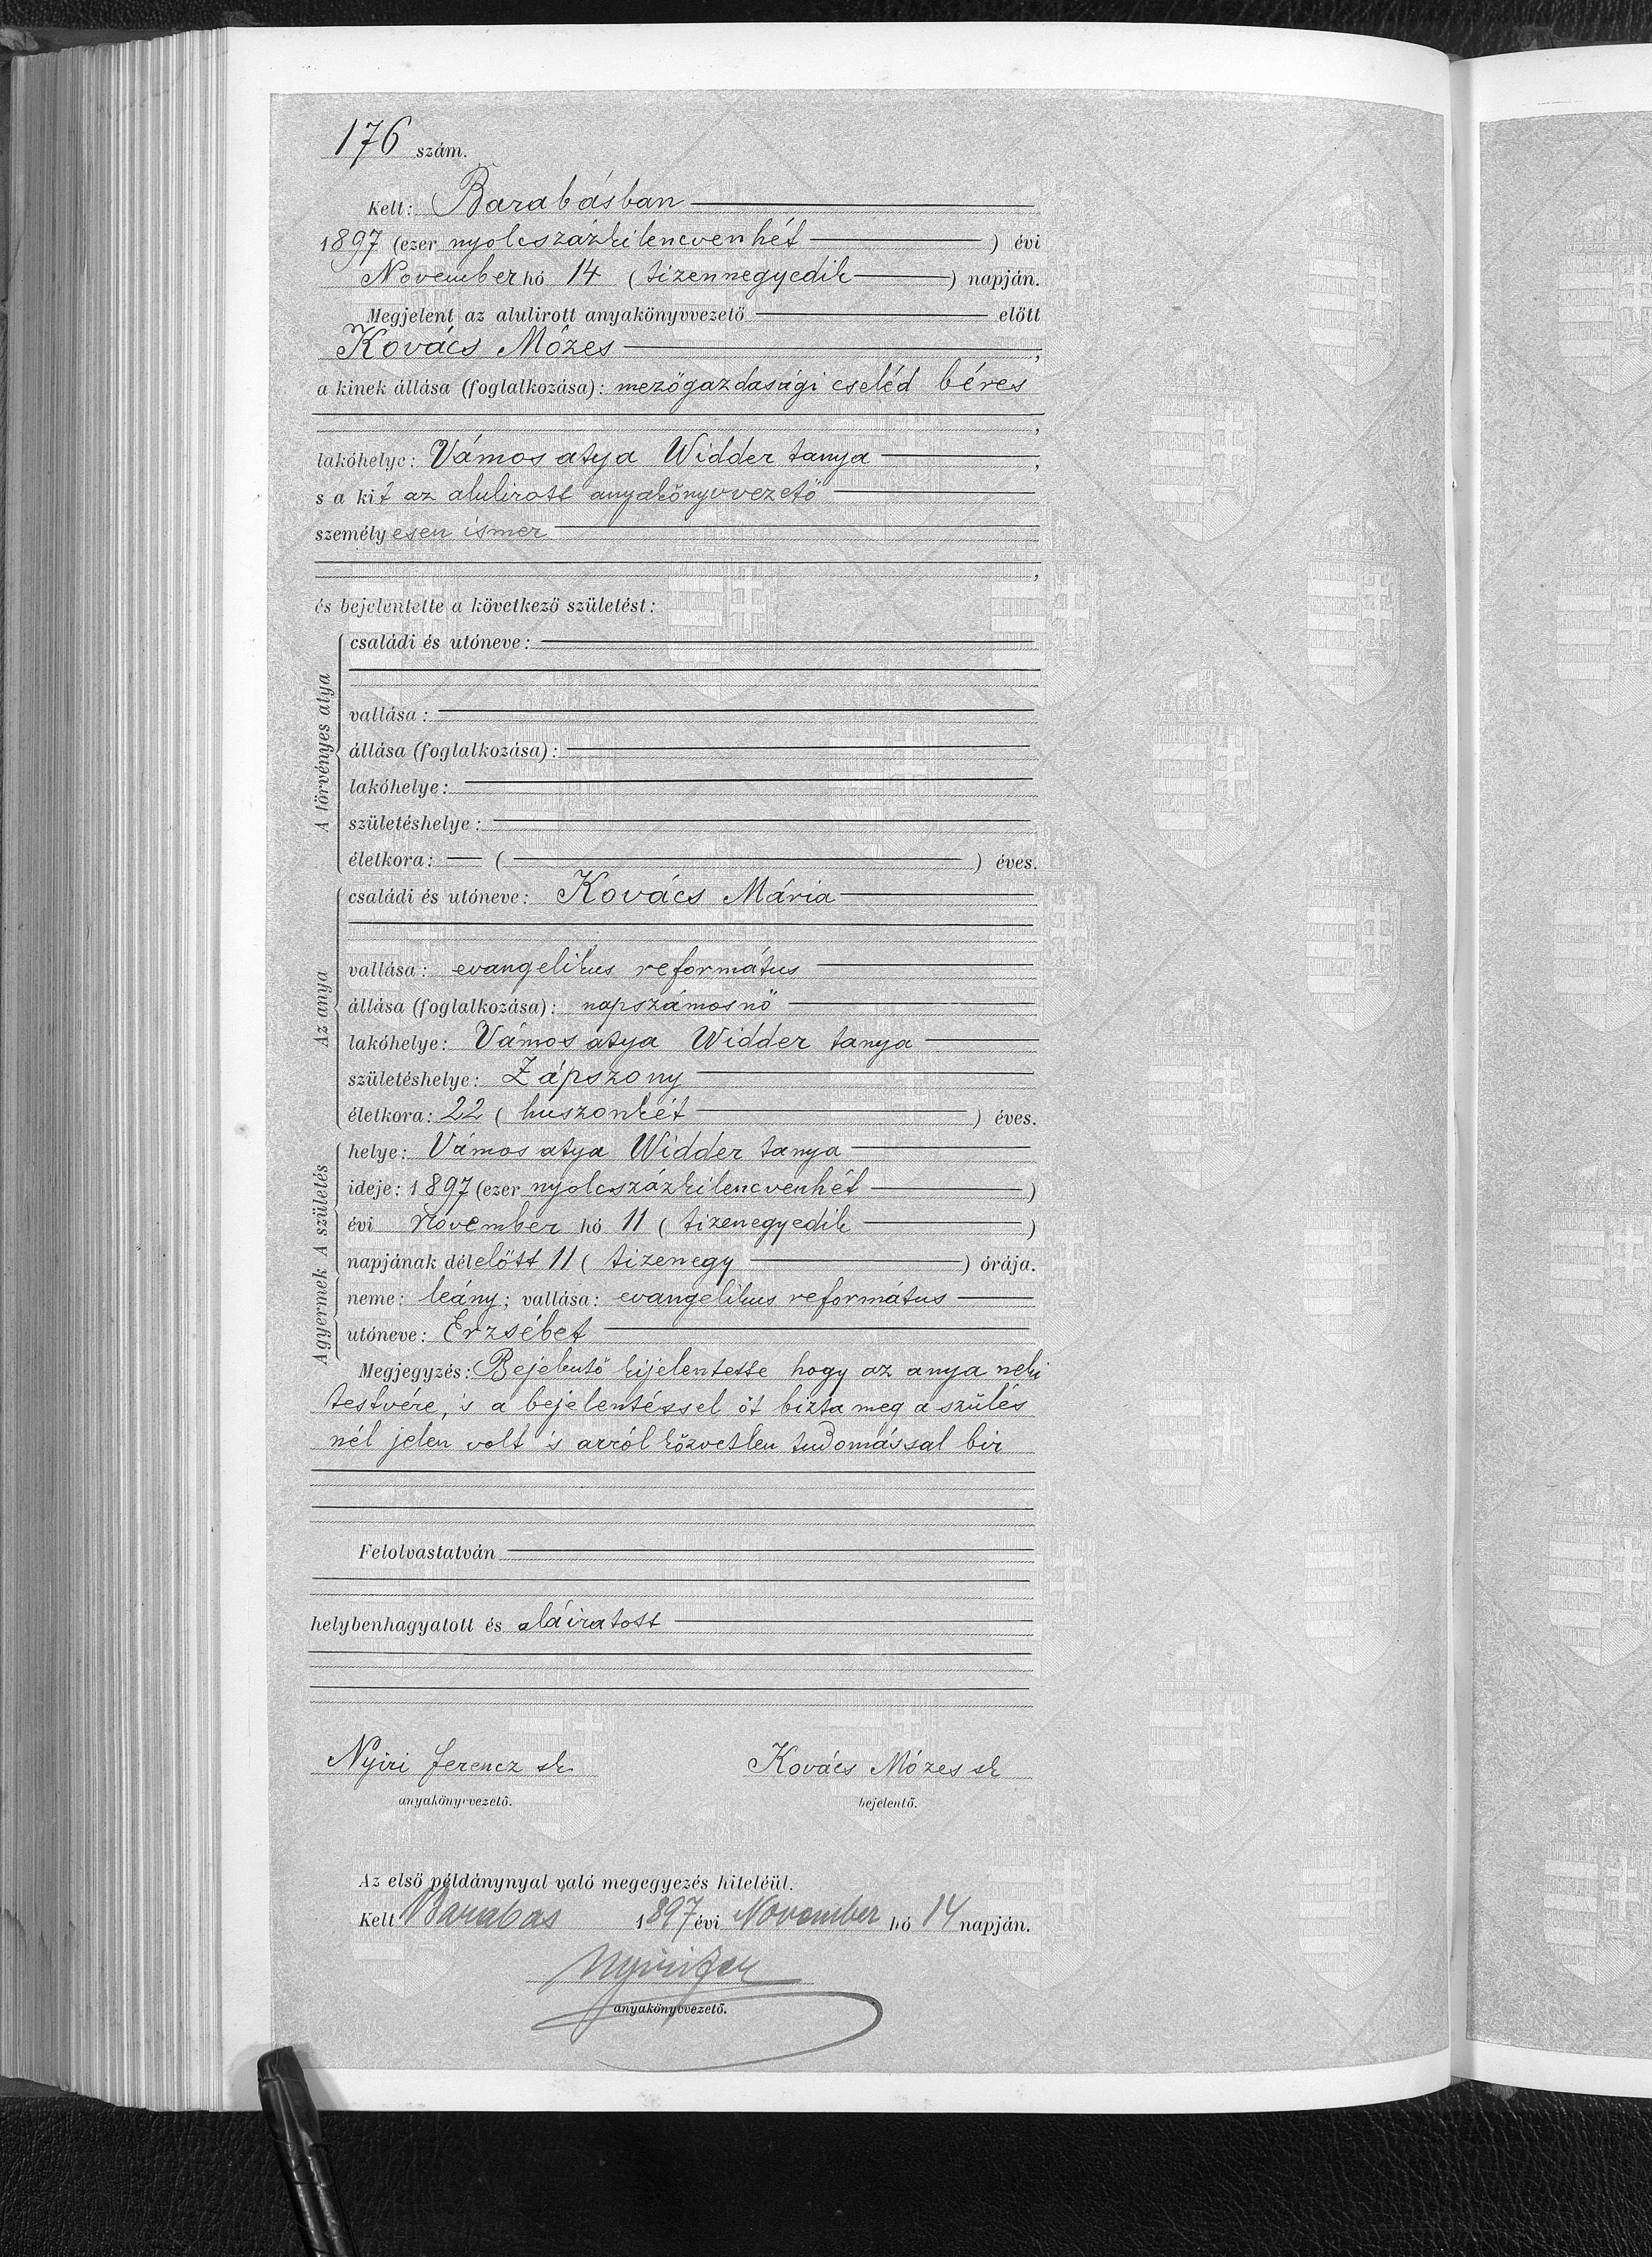 176 szám.
Kelt: Barabásban
1897 (ezer nyolcszázkilencvenhét) évi
November hó 14 (tizennegyedik) napján.
Megjelent az alulirott anyakönyvvezető előtt
Kovács Mózes,
a kinek állása (foglalkozása): mezőgazdasági cseléd béres
,
lakóhelye: Vámos atya Widder tanya,
s a kit az alulirott anyakönyvvezető
személyesen ismer
,
és bejelentette a következő születést:
A törvényes atya
családi és utóneve:
vallása:
állása (foglalkozása):
lakóhelye:
születéshelye:
életkora: — ( ) éves.
Az anya
családi és utóneve: Kovács Mária
vallása: evangelikus református
állása (foglalkozása): napszámosnő
lakóhelye: Vámos atya Widder tanya
születéshelye: Zápszony
életkora: 22 (huszonkét) éves.
A születés
helye: Vámos atya Widder tanya
ideje: 1897 (ezer nyolcszázkilencvenhét)
évi November hó 11 (tizenegyedik)
napjának délelőtt 11 (tizenegy) órája.
A gyermek
neme: leány; vallása: evangelikus református
utóneve: Erzsébet
Megjegyzés: Bejelentő kijelentette hogy az anya neki
testvére, 's a bejelentéssel őt bizta meg a szülés
nél jelen volt 's arról közvetlen tudomással bir
Felolvastatván
helybenhagyatott és aláiratott
Nyiri Ferencz sk. Kovács Mózes sk
anyakönyvvezető. bejelentő.
Az első példánynyal való megegyezés hiteléül.
Kelt Barabas 1897 évi November hó 14 napján.
Nyiri Fer
anyakönyvvezető.